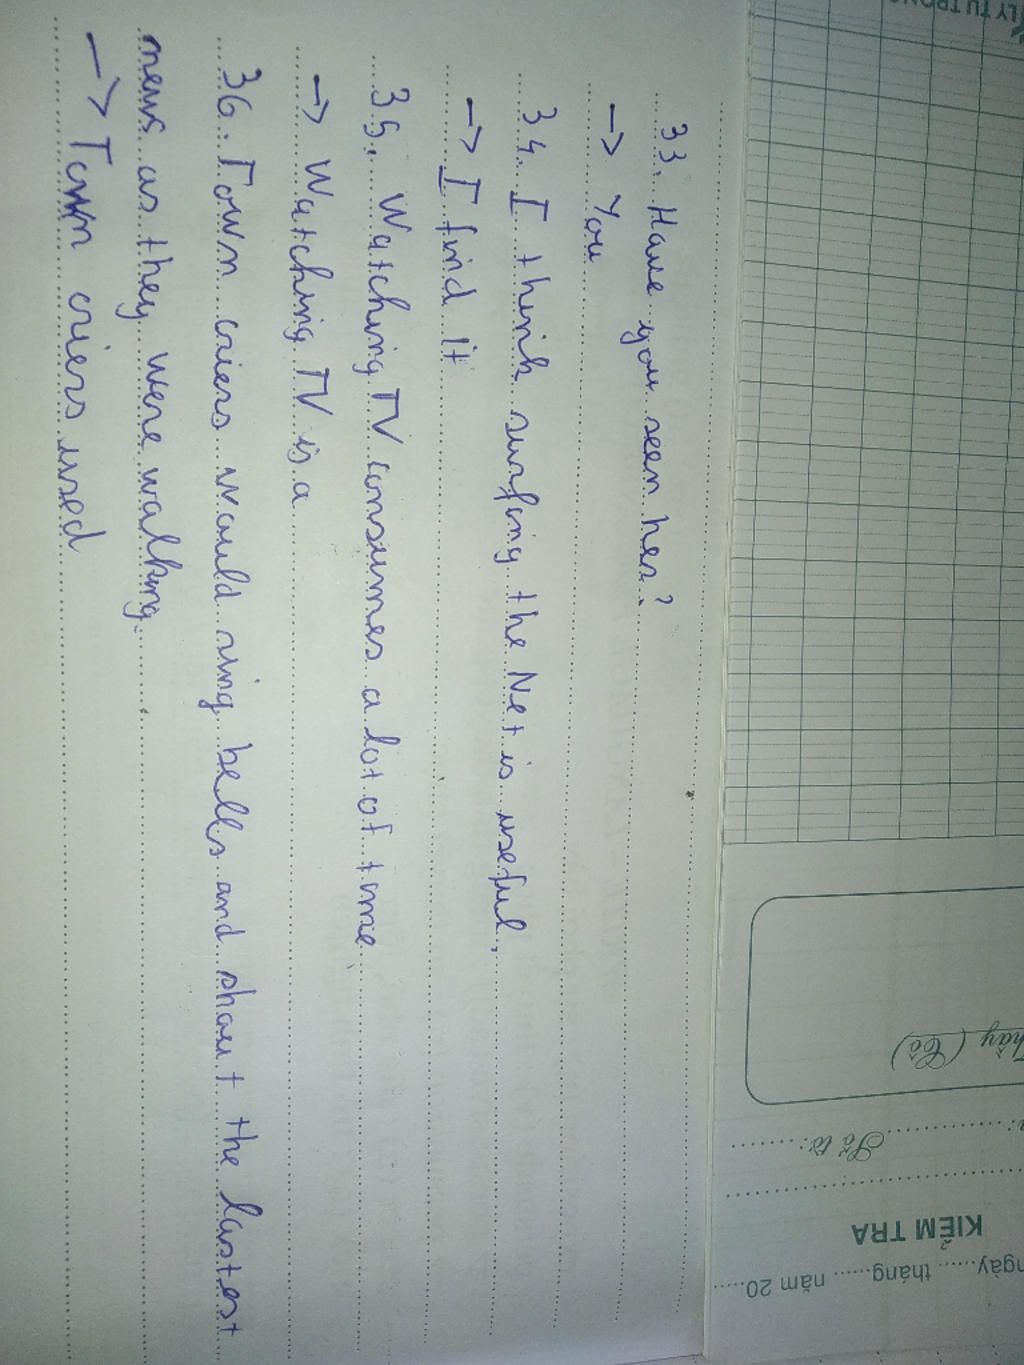 33. Have you seen her?
→ You
34. I think surfing the Net is useful.
→ I find it
35. Watching TV consumes a lot of time.
→ Watching TV is a
36. Town criers would ring bells and shout the lastest
news as they were walking.
→ Town criers used
LÝ TỰ TRỌNG
Thầy (Cô)
Số tờ:
KIỂM TRA
ngày...... tháng...... năm 20.....